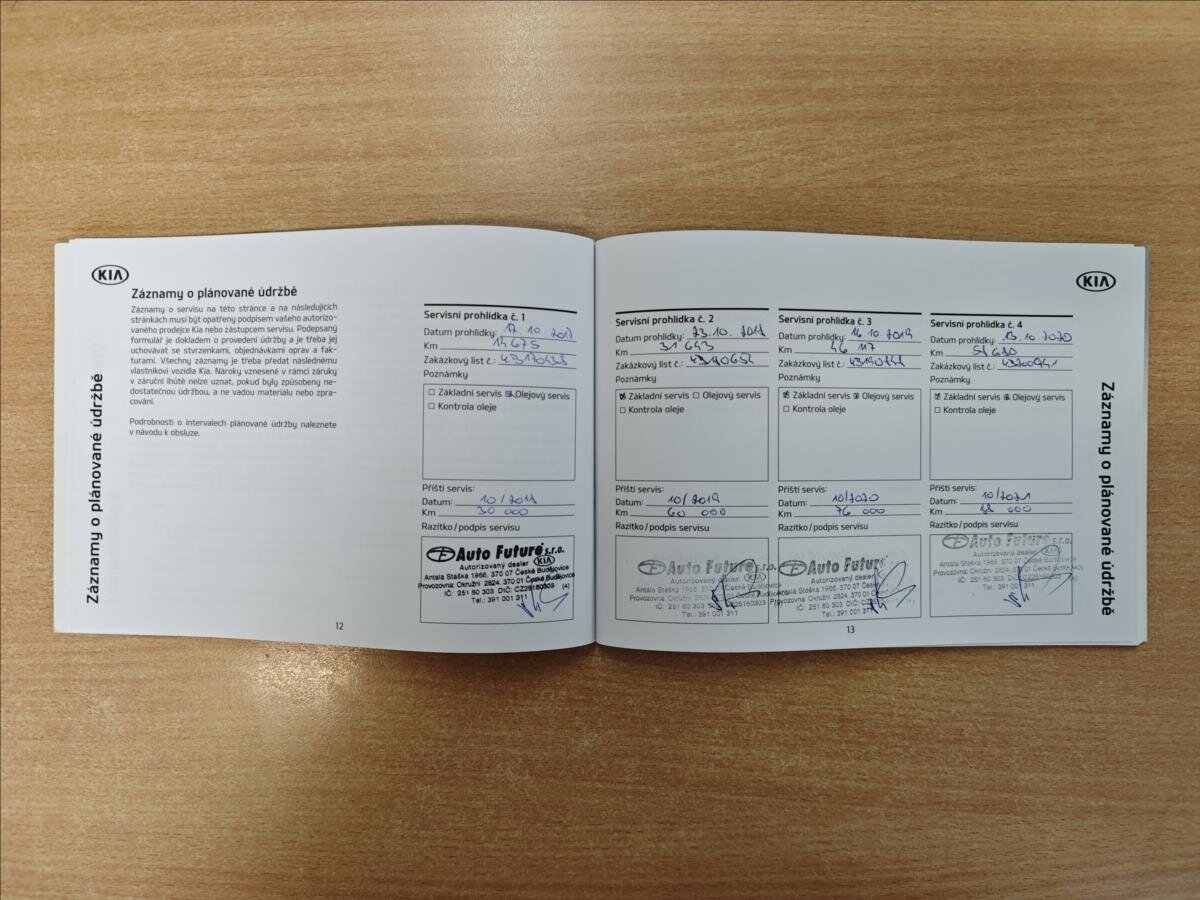 KIA
Záznamy o plánované údržbě
Záznamy o servisu na této stránce a na následujících
stránkách musí být opatřeny podpisem vašeho autorizo-
vaného prodejce Kia nebo zástupcem servisu. Podepsaný
formulář je dokladem o provedení údržby a je třeba jej
uchovávat se stvrzenkami, objednávkami oprav a fak-
turami. Všechny záznamy je třeba předat následnému
vlastníkovi vozidla Kia. Nároky vznesené v rámci záruky
v záruční lhůtě nelze uznat, pokud byly způsobeny ne-
dostatečnou údržbou, a ne vadou materiálu nebo zpra-
cování.
Podrobnosti o intervalech plánované údržby naleznete
v návodu k obsluze.
Záznamy o plánované údržbě
12
Servisní prohlídka č. 1
Datum prohlídky: 17. 10. 2017
Km 14 675
Zakázkový list č.:
Poznámky
Základní servis Olejový servis
Kontrola oleje
Příští servis:
Datum: 10/2018
Km 30 000
Razítko/podpis servisu
Auto Future s.r.o.
Autorizovaný dealer KIA
Antala Staška 1966, 370 07 České Budějovice
Provozovna: Okružní 2824, 370 01 České Budějovice
IČ: 251 60 303 DIČ: CZ25160303 (4)
Tel.: 391 001 311
Servisní prohlídka č. 2
Datum prohlídky: 23. 10. 2018
Km 31 643
Zakázkový list č.:
Poznámky
Základní servis Olejový servis
Kontrola oleje
Příští servis:
Datum: 10/2019
Km 60 000
Razítko/podpis servisu
Auto Future s.r.o.
Autorizovaný dealer KIA
Antala Staška 1966, 370 07
Provozovna: Okružní 2824, 370 01 České
IČ: 251 60 303
Tel.: 391 001 311
Servisní prohlídka č. 3
Datum prohlídky: 16. 10. 2019
Km 46 117
Zakázkový list č.:
Poznámky
Základní servis Olejový servis
Kontrola oleje
Příští servis:
Datum: 10/2020
Km 76 000
Razítko/podpis servisu
Auto Future
Autorizovaný dealer
Antala Staška 1966, 370 07
Provozovna: Okružní 2824, 370 01
IČ: 251 60 303 DIČ:
Tel.: 391 001 311
KIA
Servisní prohlídka č. 4
Datum prohlídky: 13. 10. 2020
Km
Zakázkový list č.:
Poznámky
Základní servis Olejový servis
Kontrola oleje
Příští servis:
Datum: 10/2021
Km 88 000
Razítko/podpis servisu
Auto Future s.r.o.
Autorizovaný dealer KIA
Antala Staška 1966, 370 07 České Budějovice
Provozovna: Okružní 2824, 370 01 České Budějovice
IČ: 251 60 303 DIČ: CZ25160303
Tel.: 391 001 311
Záznamy o plánované údržbě
13